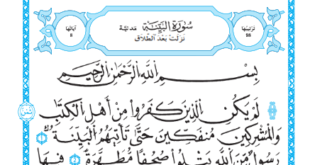 ترتيبها
٩٨
سورة البينة مدنية
نزلت بعد الطلاق
آياتها
٨
بِسْمِ اللَّهِ الرَّحْمَٰنِ الرَّحِيمِ
لَمْ يَكُنِ الَّذِينَ كَفَرُوا مِنْ أَهْلِ الْكِتَٰبِ
وَالْمُشْرِكِينَ مُنفَكِّينَ حَتَّىٰ تَأْتِيَهُمُ الْبَيِّنَةُ ١
رَسُولٌ مِّنَ اللَّهِ يَتْلُوا صُحُفًا مُّطَهَّرَةً ٢ فِيهَا